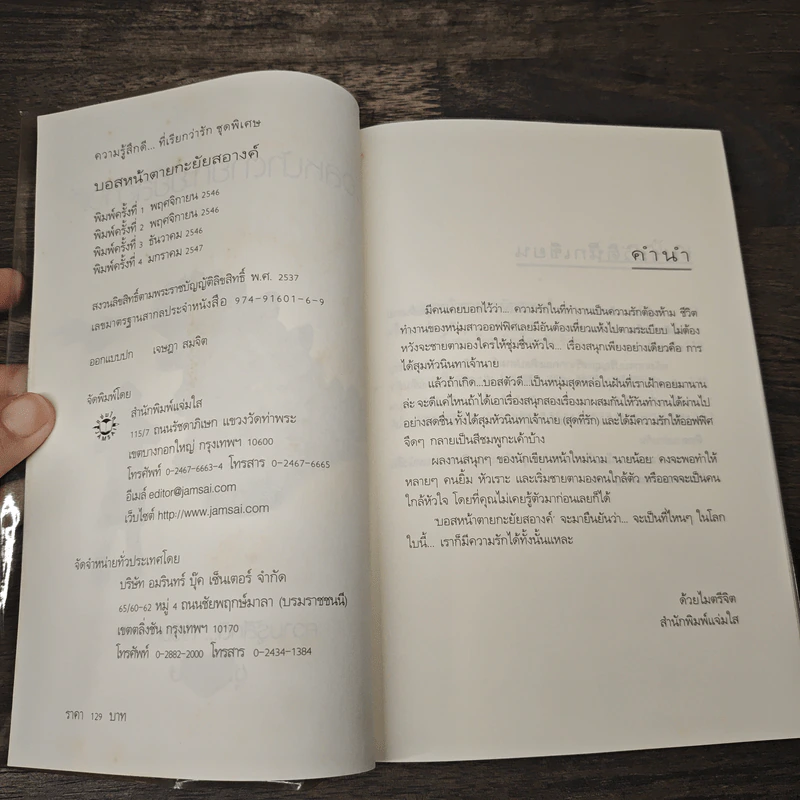 ความรู้สึกดี... ที่เรียกว่ารัก ชุดพิเศษ
บอสหน้าตายกะยัยสอางค์
พิมพ์ครั้งที่ 1 พฤศจิกายน 2546
พิมพ์ครั้งที่ 2 พฤศจิกายน 2546
พิมพ์ครั้งที่ 3 ธันวาคม 2546
พิมพ์ครั้งที่ 4 มกราคม 2547
สงวนลิขสิทธิ์ตามพระราชบัญญัติลิขสิทธิ์ พ.ศ. 2537
เลขมาตรฐานสากลประจำหนังสือ 974-91601-6-9
ออกแบบปก เจษฎา สมจิต
จัดพิมพ์โดย
สำนักพิมพ์แจ่มใส
115/7 ถนนรัชดาภิเษก แขวงวัดท่าพระ
เขตบางกอกใหญ่ กรุงเทพฯ 10600
โทรศัพท์ 0-2467-6663-4 โทรสาร 0-2467-6665
อีเมล์ editor@jamsai.com
เว็บไซต์ http://www.jamsai.com
จัดจำหน่ายทั่วประเทศโดย
บริษัท อมรินทร์ บุ๊ค เซ็นเตอร์ จำกัด
65/60-62 หมู่ 4 ถนนชัยพฤกษ์มาลา (บรมราชชนนี)
เขตตลิ่งชัน กรุงเทพฯ 10170
โทรศัพท์ 0-2882-2000 โทรสาร 0-2434-1384
ราคา 129 บาท
คำนำ
มีคนเคยบอกไว้ว่า... ความรักในที่ทำงานเป็นความรักต้องห้าม ชีวิต
ทำงานของหนุ่มสาวออฟฟิศเลยมีอันต้องเหี่ยวแห้งไปตามระเบียบ ไม่ต้อง
หวังจะชายตามองใครให้ชุ่มชื่นหัวใจ... เรื่องสนุกเพียงอย่างเดียวคือ การ
ได้สุมหัวนินทาเจ้านาย
แล้วถ้าเกิด...บอสตัวดี...เป็นหนุ่มสุดหล่อในฝันที่เราเฝ้าคอยมานาน
ล่ะ จะดีแค่ไหนถ้าได้เอาเรื่องสนุกสองเรื่องมาผสมกันให้วันทำงานได้ผ่านไป
อย่างสดชื่น ทั้งได้สุมหัวนินทาเจ้านาย (สุดที่รัก) และได้มีความรักให้ออฟฟิศ
จืดๆ กลายเป็นสีชมพูกะเค้าบ้าง
ผลงานสนุกๆ ของนักเขียนหน้าใหม่นาม 'นายน้อย' คงจะพอทำให้
หลายๆ คนยิ้ม หัวเราะ และเริ่มชายตามองคนใกล้ตัว หรืออาจจะเป็นคน
ใกล้หัวใจ โดยที่คุณไม่เคยรู้ตัวมาก่อนเลยก็ได้
'บอสหน้าตายกะยัยสอางค์' จะมายืนยันว่า... จะเป็นที่ไหนๆ ในโลก
ใบนี้... เราก็มีความรักได้ทั้งนั้นแหละ
ด้วยไมตรีจิต
สำนักพิมพ์แจ่มใส